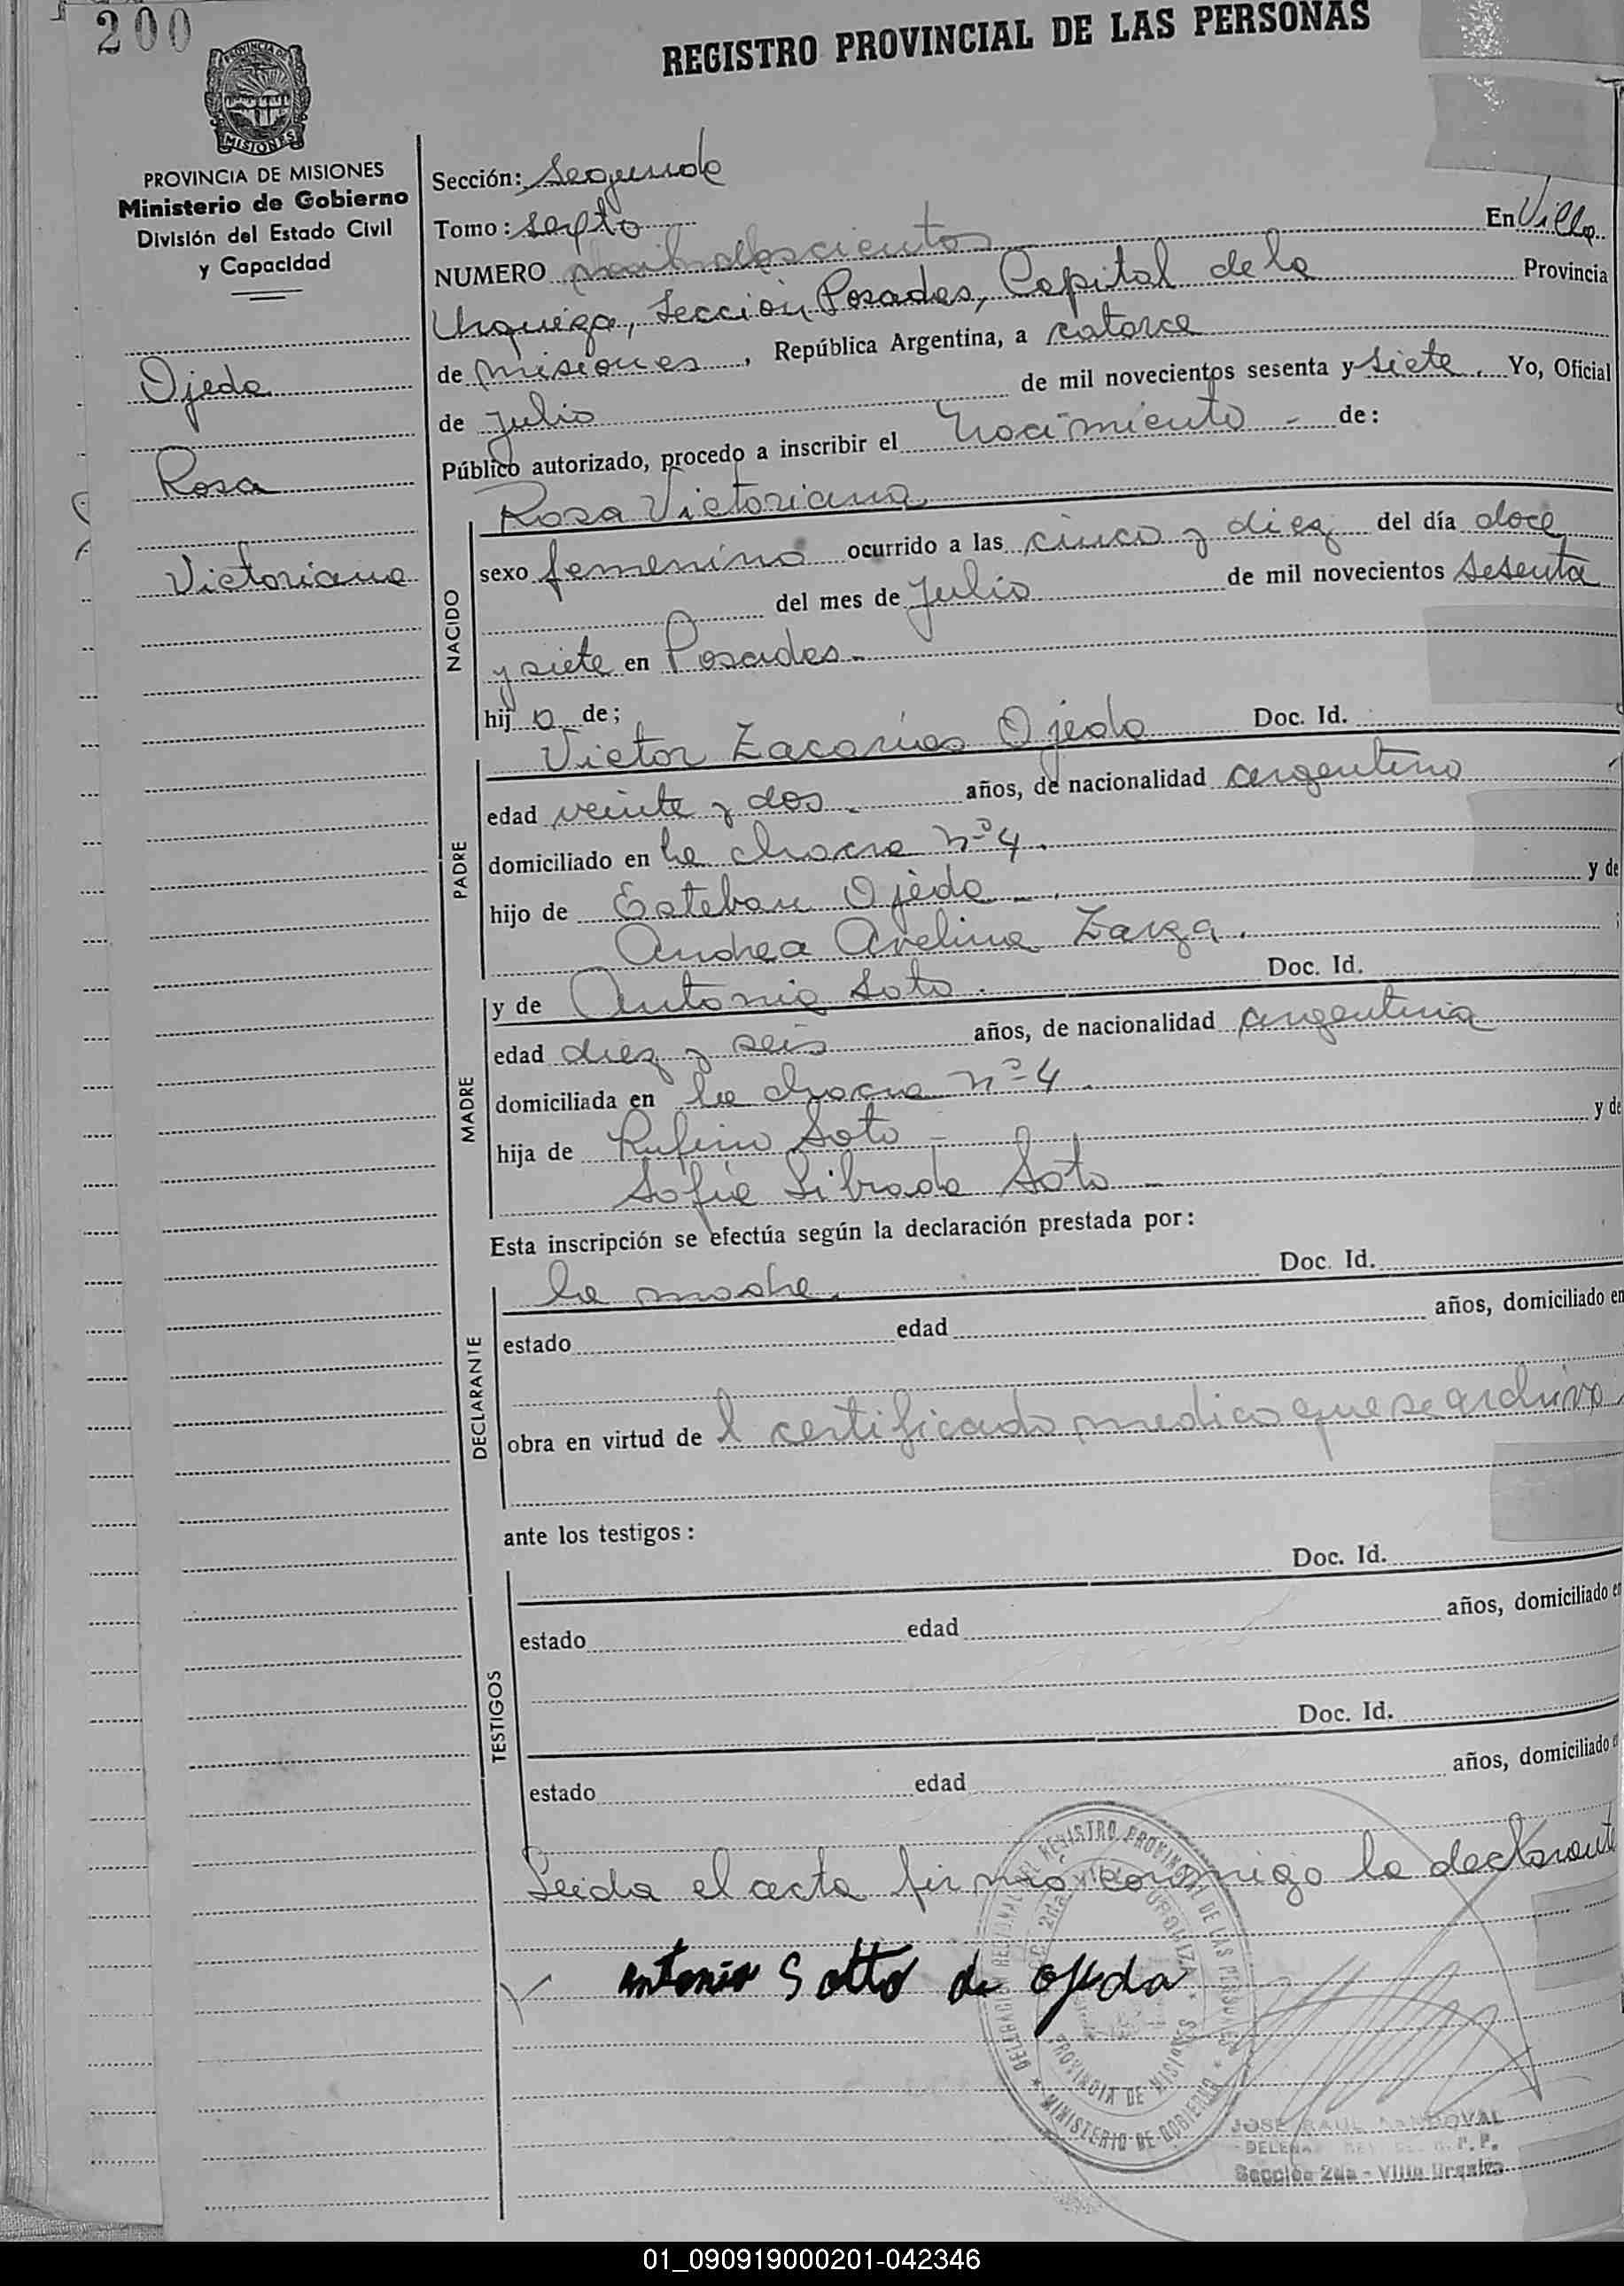 200
REGISTRO PROVINCIAL DE LAS PERSONAS
PROVINCIA DE MISIONES
MISIONES
PROVINCIA DE MISIONES
Ministerio de Gobierno
División del Estado Civil
y Capacidad
Ojeda
Rosa
Victoriana
Sección: Segunda
Tomo: sexto
NUMERO doscientos En Villa
Urquiza, Sección Posadas, Capital de la Provincia
de Misiones, República Argentina, a catorce
de Julio de mil novecientos sesenta y siete. Yo, Oficial
Público autorizado, procedo a inscribir el Nacimiento - de:
NACIDO
Rosa Victoriana
sexo femenino ocurrido a las cinco y diez del día doce
del mes de Julio de mil novecientos sesenta
y siete en Posadas.-
hij a de;
PADRE
Victor Zacarias Ojeda Doc. Id.
edad veinte y dos. años, de nacionalidad argentino
domiciliado en la chacra nº 4.
hijo de Esteban Ojeda - . y de
Andrea Avelina Zarza.
MADRE
y de Antonia Soto. Doc. Id.
edad diez y seis años, de nacionalidad argentina
domiciliada en la chacra nº 4.
hija de Rufino Soto - y de
Sofia Librada Soto -
Esta inscripción se efectúa según la declaración prestada por:
DECLARANTE
la madre. Doc. Id.
estado edad años, domiciliado en
obra en virtud de l certificado medico que se archiva
ante los testigos:
TESTIGOS
Doc. Id.
estado edad años, domiciliado en
Doc. Id.
estado edad años, domiciliado e
Leida el acta firmó conmigo la declarant
antonia Sotto de ojeda
REGISTRO PROVINCIAL DE LAS PERSONAS
2da URQUIZA
PROVINCIA DE MISIONES
* MINISTERIO DE GOBIERNO *
JOSE RAUL SANDOVAL
R. P. P.
Sección 2da - Villa Urquiza
01_090919000201-042346